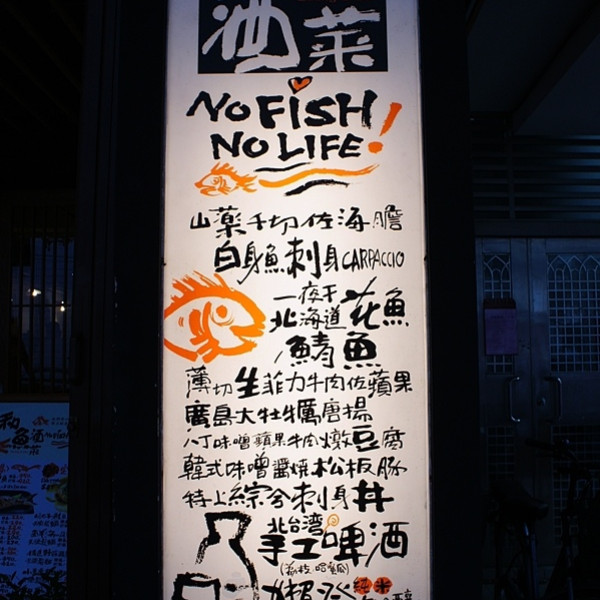 酒菜
NO FISH
NO LIFE!
山薬千切佐海膽
白身魚刺身CARPACCIO
一夜干
北海道花魚
鯖魚
薄切生菲力牛肉佐蘋果
廣島大牡蠣唐揚
八丁味噌蘋果牛肉燉豆腐
韓式味噌醬燒松板豚
特上綜合刺身丼
北台灣
手工啤酒
純米